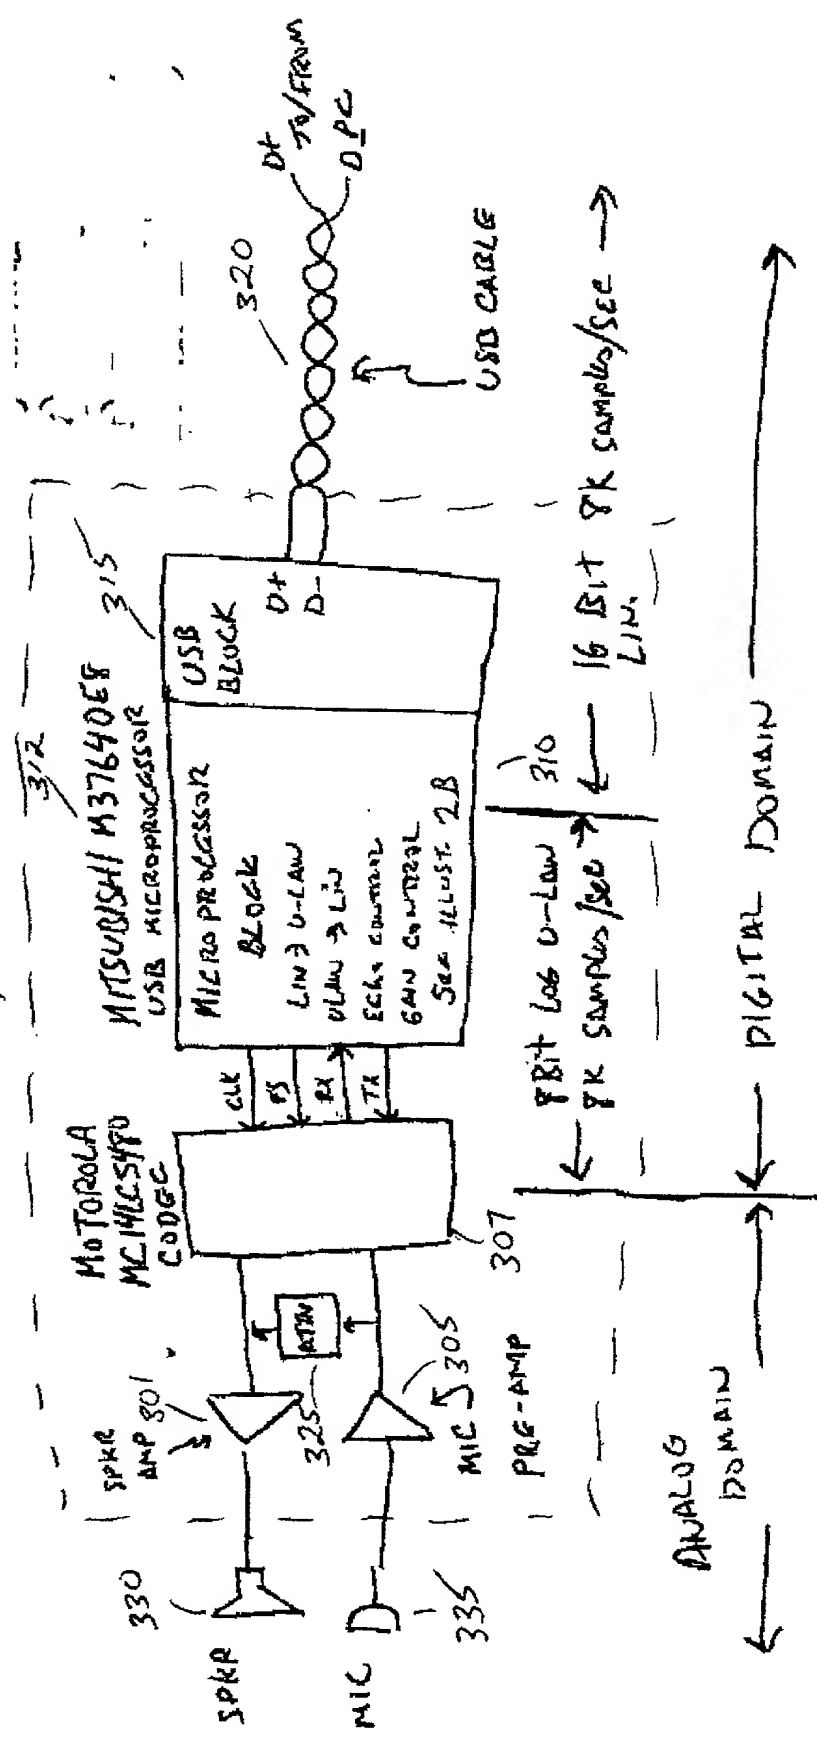 SPKR
330
MIC
335
SPKR
AMP
301
325
MIC
305
PRE-AMP
ATTN
MOTOROLA
MC14LC5480
CODEC
307
CLK
FS
RX
TX
312
MITSUBISHI M37640E8
USB MICROPROCESSOR
315
MICROPROCESSOR
BLOCK
LIN → U-LAW
ULAW → LIN
ECHO CONTROL
GAIN CONTROL
SEE ILLUST. 2B
USB
BLOCK
D+
D-
310
320
D+
TO/FROM
PC
D-
USB CABLE
8 Bit LOG U-LAW
8K SAMPLES/SEC
16 Bit 8K SAMPLES/SEC
LIN.
ANALOG
DOMAIN
DIGITAL DOMAIN